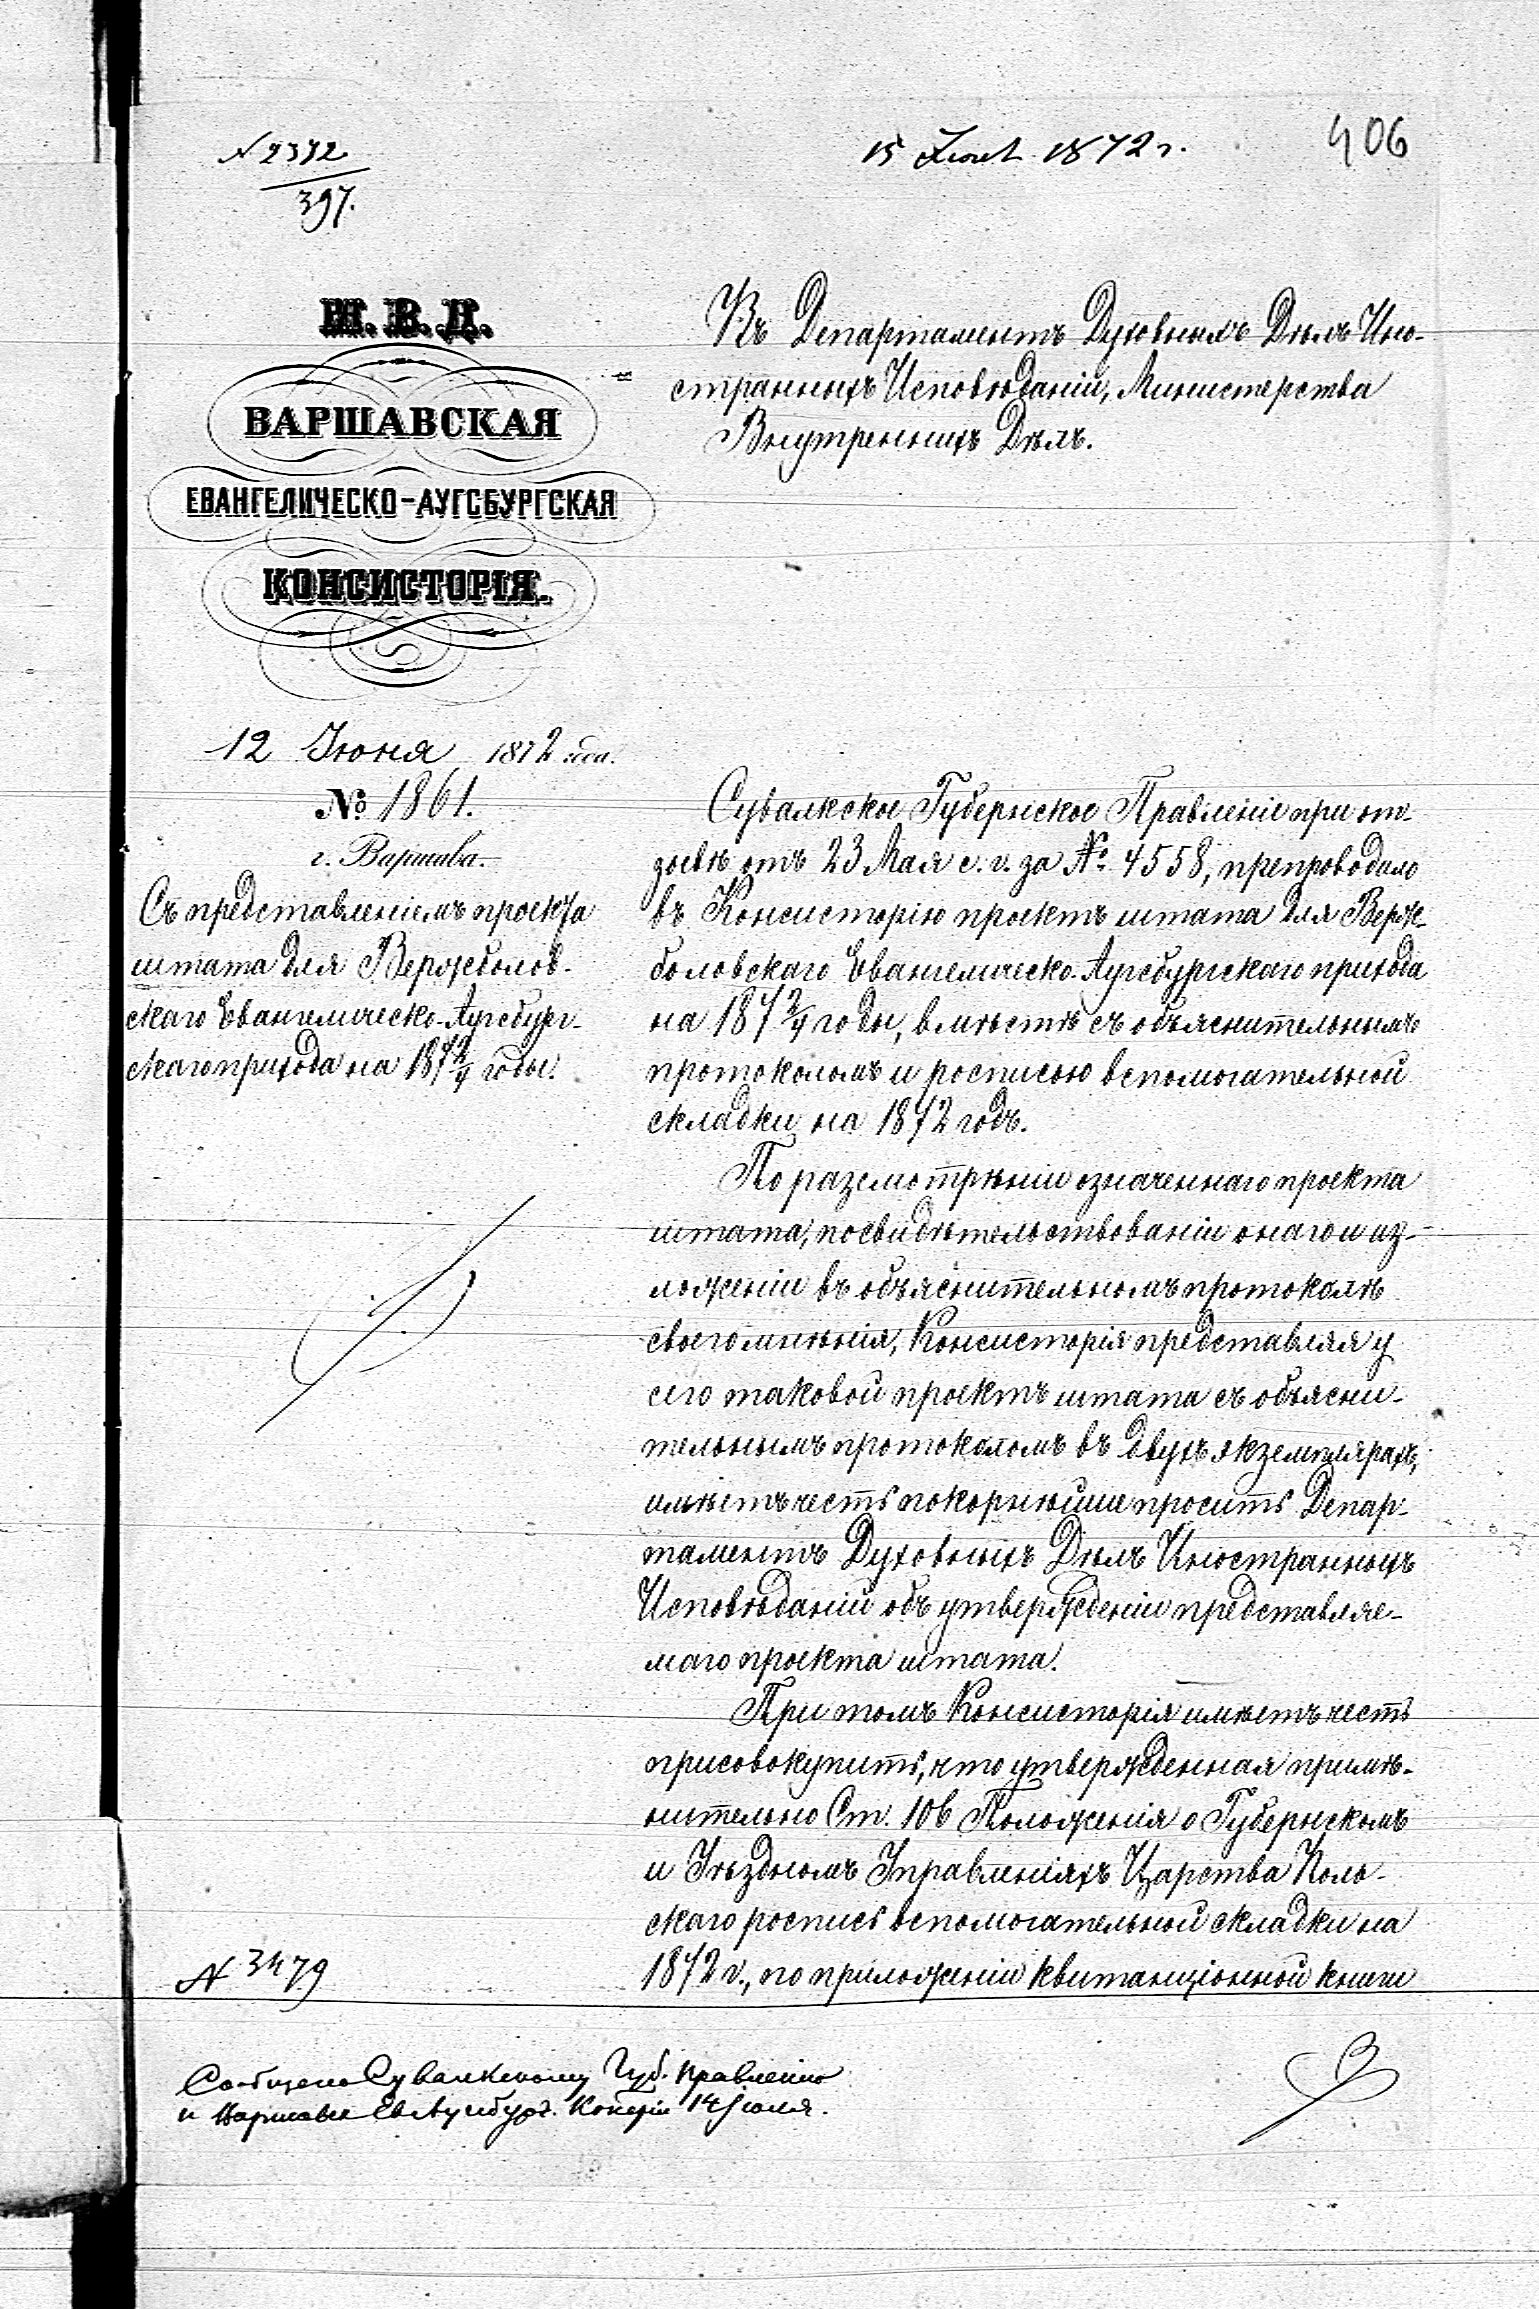 № 2372
397.
15 Июня 1872 г.
406
М. В. Д.
ВАРШАВСКАЯ
ЕВАНГЕЛИЧЕСКО-АУГСБУРГСКАЯ
КОНСИСТОРІЯ.
12 Июня 1872 года.
№ 1861.
г. Варшава.
Съ представленіемъ проекта
штата для Вержболов-
скаго Евангелическо-Аугсбург-
скаго прихода на 1872/4 годы.
Въ Департаментъ Духовныхъ Дѣлъ Ино-
странныхъ Исповѣданій, Министерства
Внутреннихъ Дѣлъ.
Сувалкское Губернское Правленіе при от-
зывѣ отъ 23 Мая с. г. за № 4558, препроводило
въ Консисторію проектъ штата для Верж-
боловскаго Евангелическо-Аугсбургскаго прихода
на 1872/4 годы, вмѣстѣ съ объяснительнымъ
протоколомъ и росписью вспомогательной
складки на 1872 годъ.
По разсмотрѣніи означеннаго проекта
штата, посвидѣтельствованіи онаго и из-
ложеніи въ объяснительномъ протоколѣ
своего мнѣнія, Консисторія представляя у
сего таковой проектъ штата съ объясни-
тельнымъ протоколомъ въ двухъ экземплярахъ,
имѣетъ честь покорнѣйше просить Депар-
таментъ Духовныхъ Дѣлъ Иностранныхъ
Исповѣданій объ утвержденіи представляе-
маго проекта штата.
При томъ Консисторія имѣетъ честь
присовокупить, что утвержденная примѣ-
нительно Ст. 106 Положенія о Губернскомъ
и Уѣздномъ Управленіяхъ Царства Поль-
скаго роспись вспомогательной складки на
1872 г., по приложеніи квитанціонной книги
№ 3479
Сообщено Сувалкскому Губ. Правленію
и Варшавск Ев Аугсбург. Конс<span></span>іи 14 Іюля.